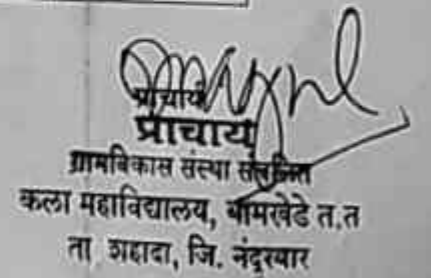 प्राचार्य
प्राचार्य
ग्रामविकास संस्था संचलित
कला महाविद्यालय, बामखेडे त.त
ता शहादा, जि. नंदुरबार